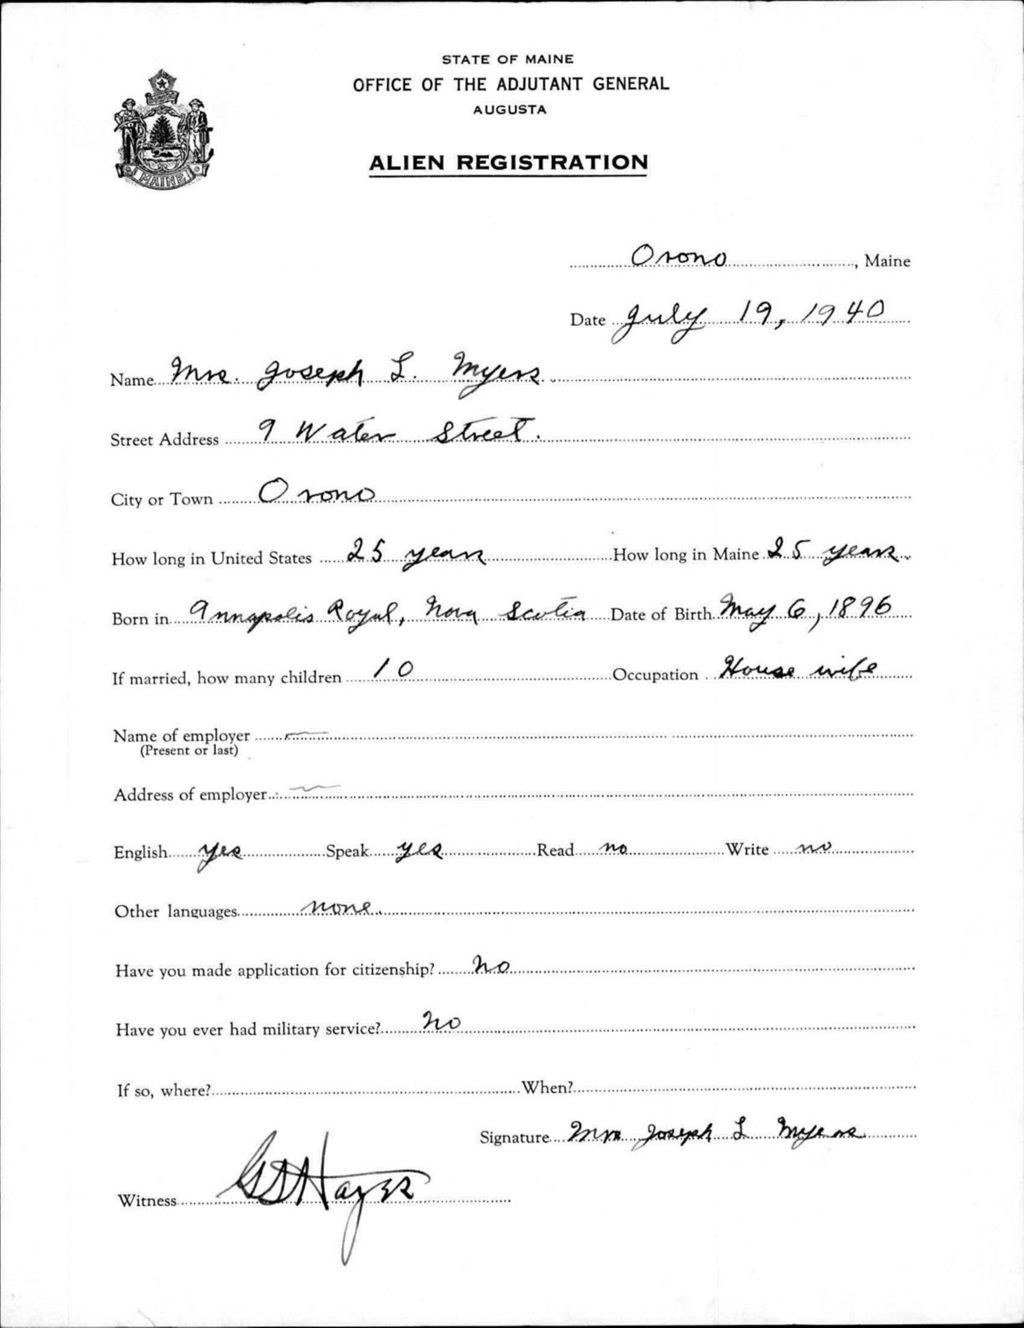 STATE OF MAINE
OFFICE OF THE ADJUTANT GENERAL
AUGUSTA
ALIEN REGISTRATION
MAINE
Orono, Maine
Date July 19, 1940
Name Mrs. Joseph L. Myers
Street Address 9 Water Street.
City or Town Orono
How long in United States 25 years How long in Maine 25 years
Born in Annapolis Royal, Nova Scotia Date of Birth May 6, 1896
If married, how many children 10 Occupation House wife
Name of employer
(Present or last)
Address of employer
English yes Speak yes Read no Write no
Other languages none.
Have you made application for citizenship? No
Have you ever had military service? No
If so, where? When?
Signature Mrs Joseph L Myers
Witness